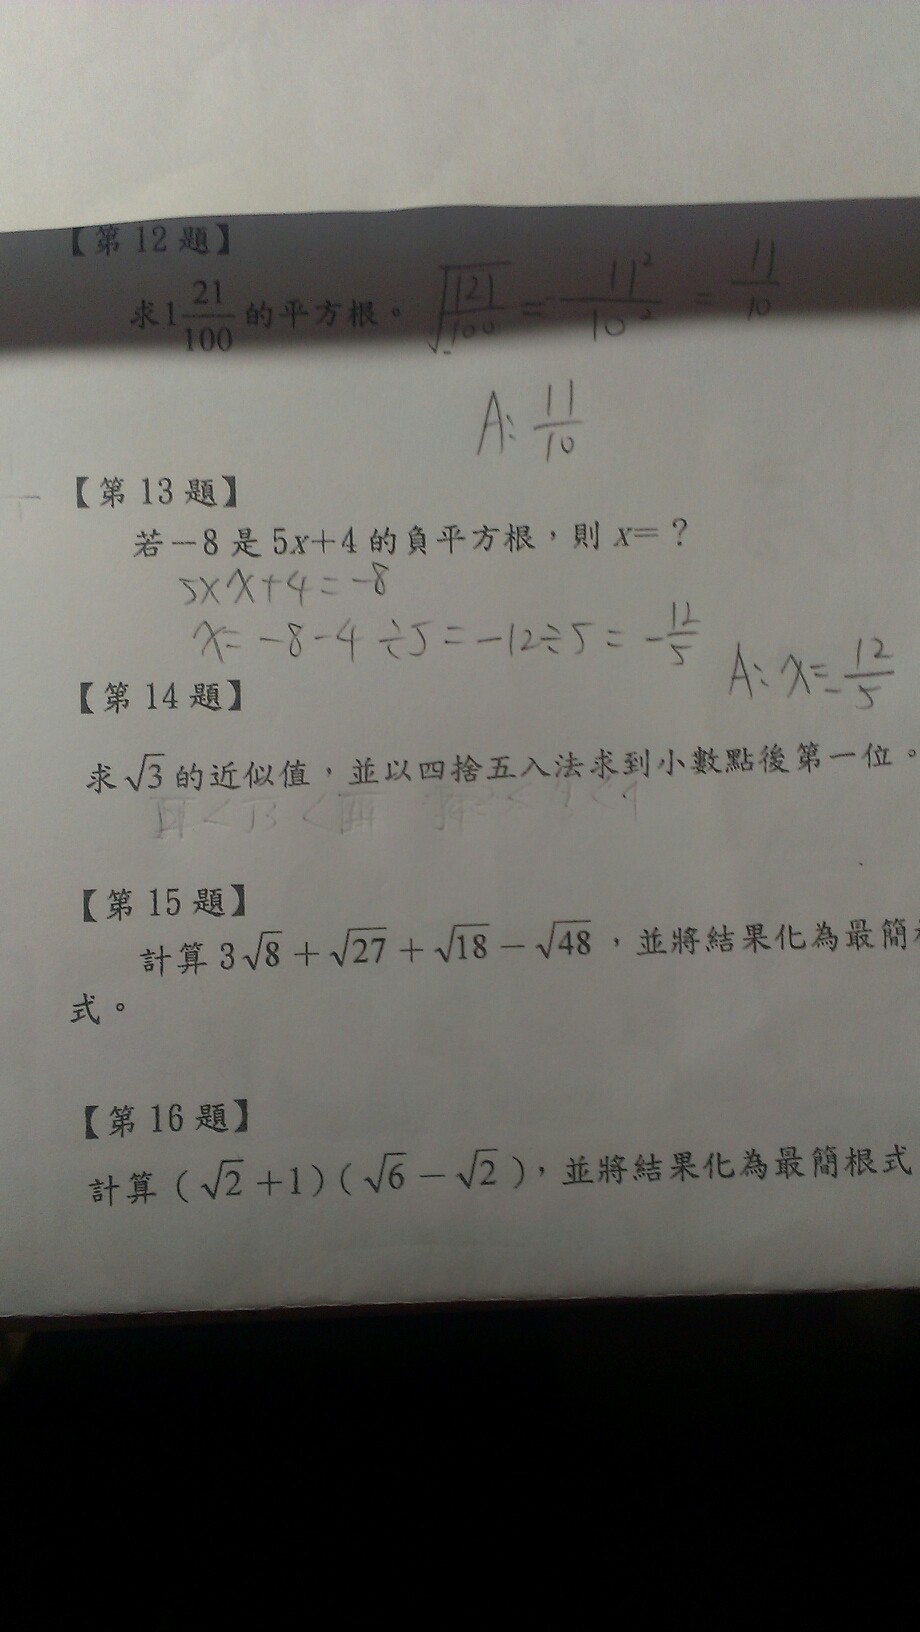 【第 12 題】
求1 21/100 的平方根。 √(121/100) = 11²/10² = 11/10
A: 11/10
【第 13 題】
若－8 是 5x＋4 的負平方根，則 x=？
5×x+4=-8
x=-8-4÷5=-12÷5=-12/5
A: x=-12/5
【第 14 題】
求√3 的近似值，並以四捨五入法求到小數點後第一位。
【第 15 題】
計算 3√8＋√27＋√18－√48，並將結果化為最簡
式。
【第 16 題】
計算（√2＋1）（√6－√2），並將結果化為最簡根式